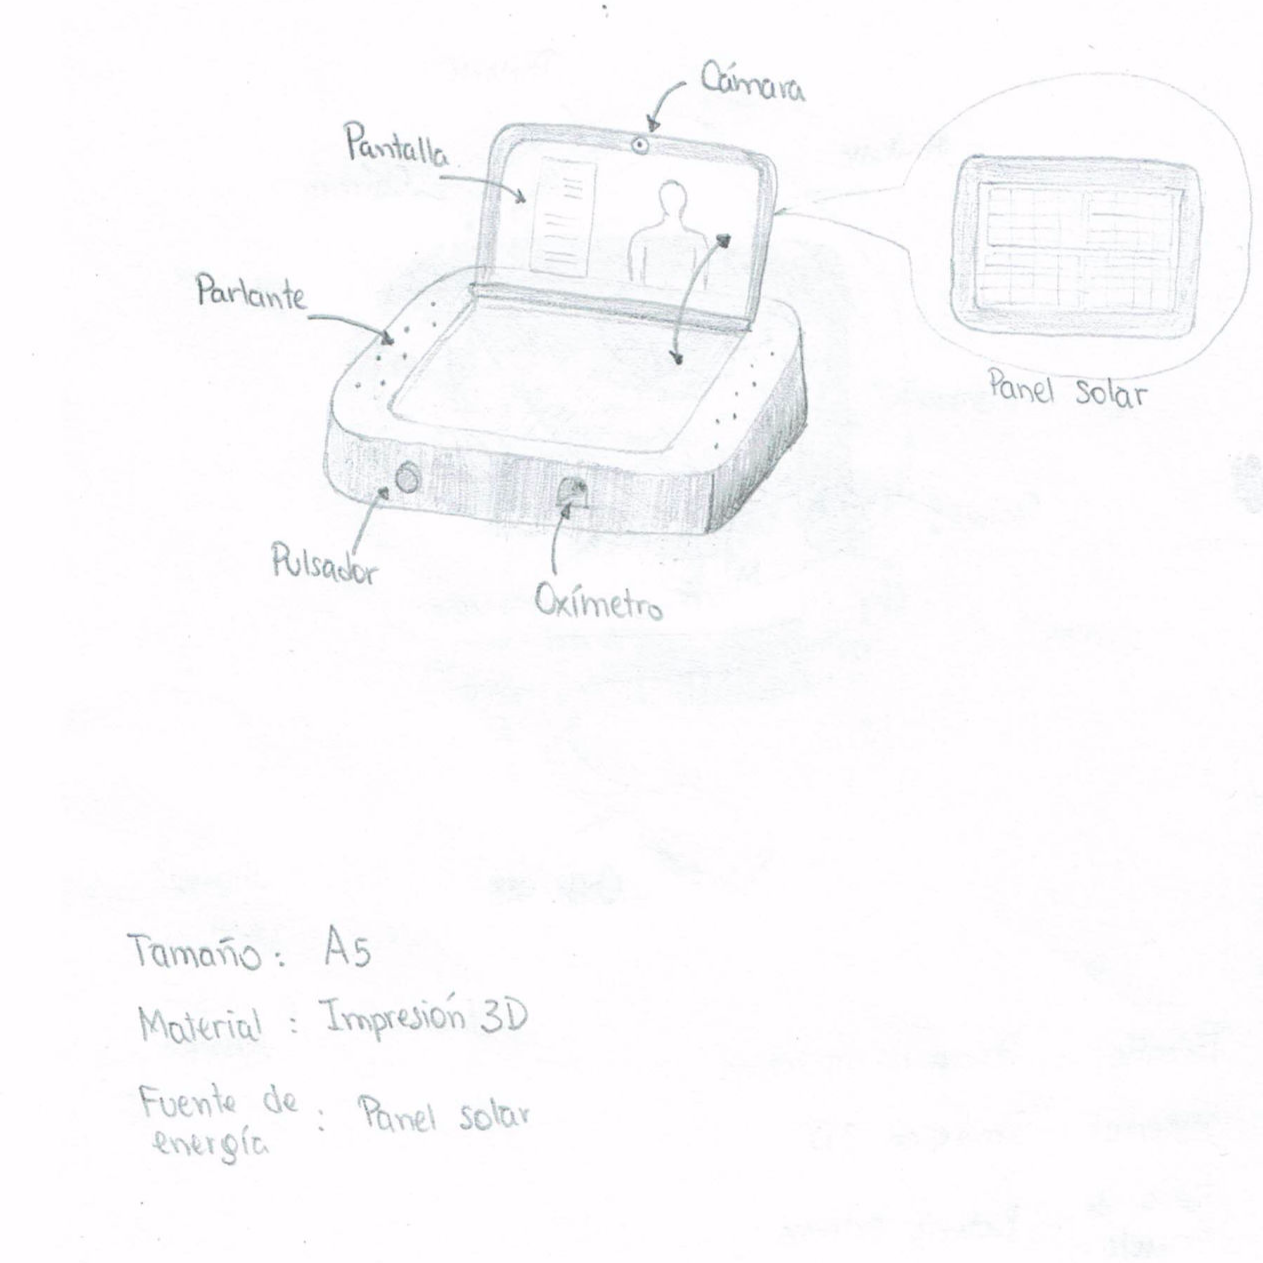 Cámara
Pantalla
Parlante
Panel solar
Pulsador
Oxímetro
Tamaño: A5
Material: Impresión 3D
Fuente de energía: Panel solar